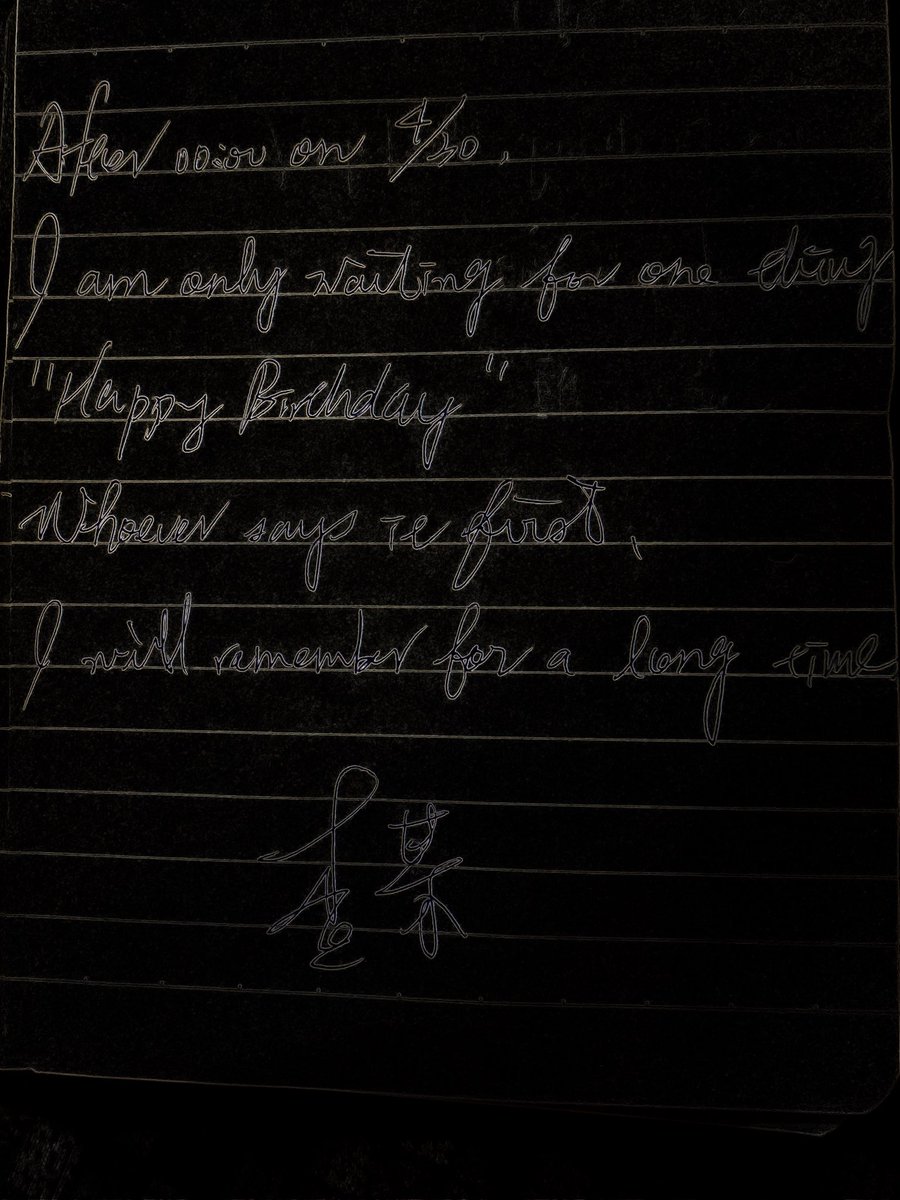 After 00:00 on 4/30,
I am only waiting for one thing
"Happy Birthday"
Whoever says it first,
I will remember for a long time